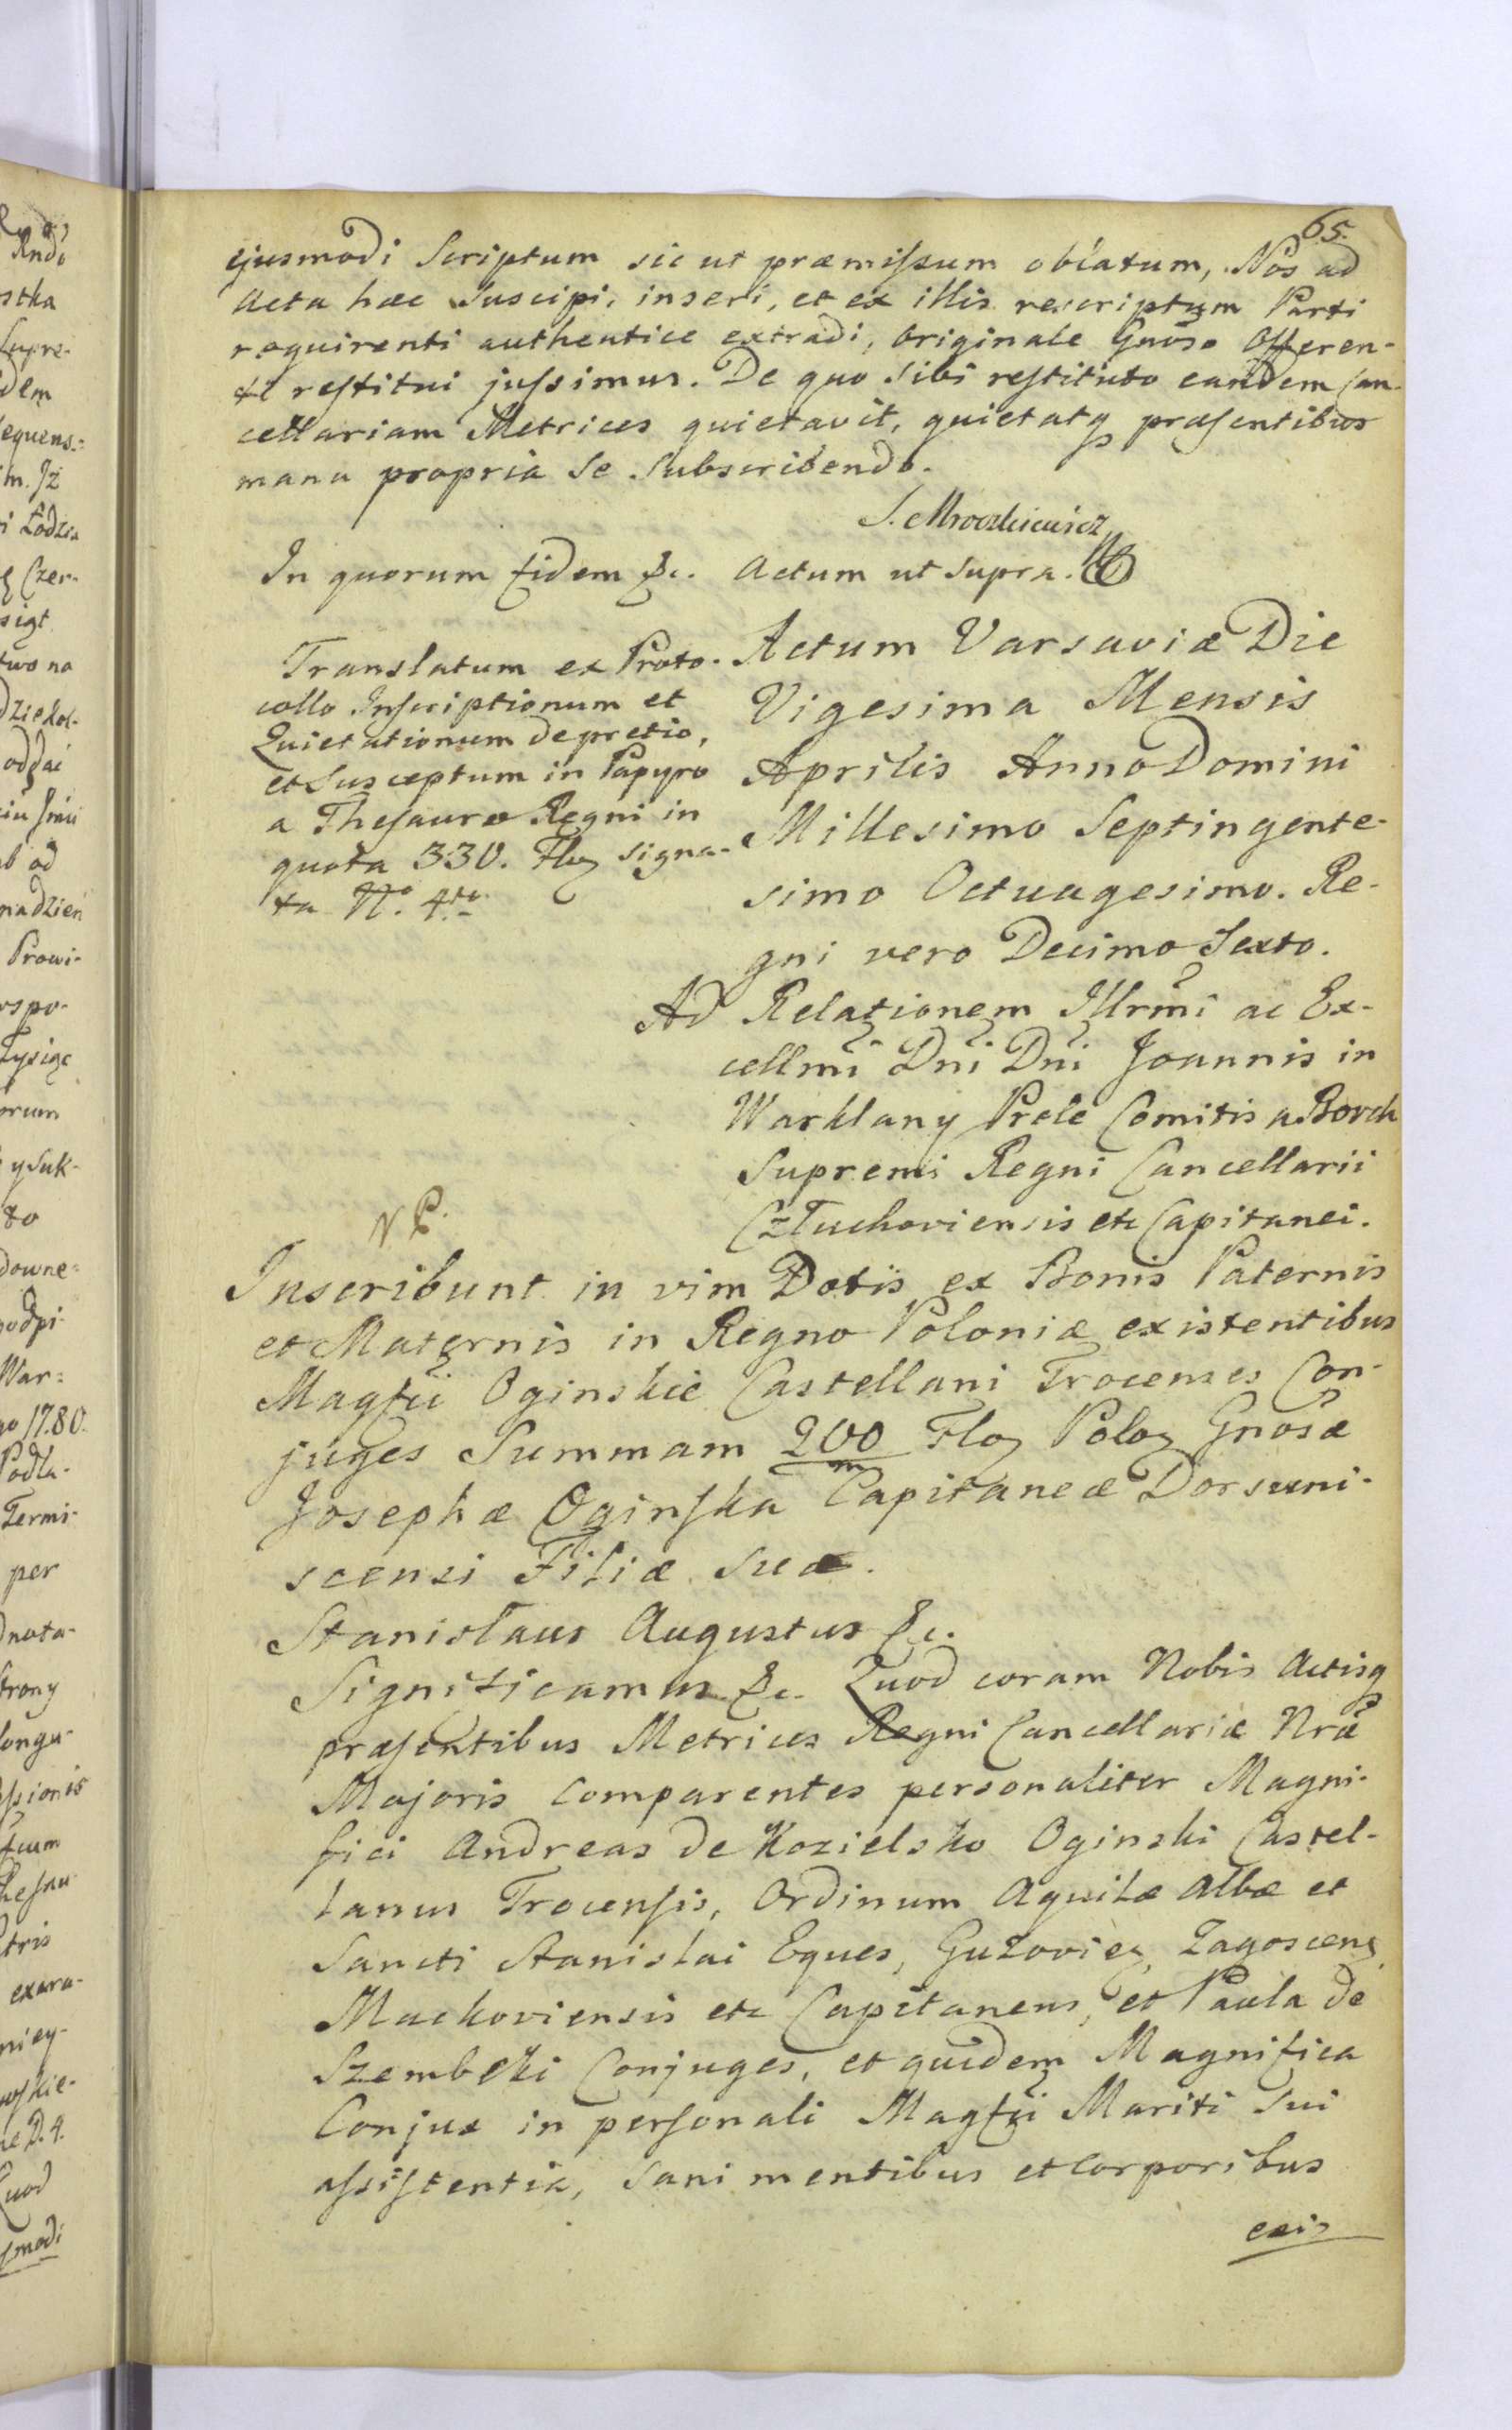 65.
ejusmodi Scriptum sic ut præmissum oblatum, Nos ad
Acta hæc Suscipi, inseri, et ex illis rescriptum Parti
requirenti authentice extradi, Originale Gnoso Offeren-
ti restitui jussimus. De quo sibi restituto eandem Can-
cellariam Metrices quietavit, quietatq præsentibus
manu propria Se Subscribendo.
J. Mroczkiewicz
In quorum fidem &c. Actum ut Supra.
Translatum ex Proto-
collo Inscriptionum et
Quietationum de pretio,
et Susceptum in Papyro
a Thesauro Regni in
quota 330. Flo signa-
ta No. 4to.
Actum Varsaviæ Die
Vigesima Mensis
Aprilis Anno Domini
Millesimo Septingente-
simo Octuagesimo. Re-
gni vero Decimo Sexto.
Ad Relationem Illrmi ac Ex-
cellmi Dni Dni Joannis in
Warklany Prele Comitis a Borch
Supremi Regni Cancellarii
Człuchoviensis etc Capitanei.
N P.
Inscribunt in vim Dotis ex Bonis Paternis
et Maternis in Regno Poloniæ existentibus
Magfii Oginskie Castellani Trocenses Con-
juges Summam 200 Flo Polo Gnosæ
m
Josephæ Oginska Capitaneæ Dorsuni-
scensi Filiæ Suæ.
Stanisłaus Augustus &c.
Significamus &c. Quod coram Nobis Actisq
præsentibus Metrices Regni Cancellariæ Nræ
Majoris Comparentes personaliter Magni-
fici Andreas de Kozielsko Oginski Castel-
lanus Trocensis, Ordinum Aquilæ Albæ et
Sancti Stanislai Eques, Guzovien, Zagoscens
Muchoviensis etc Capitaneus, et Paula de
Szembeki Conjuges, et quidem Magnifica
Conjux in personali Magfii Mariti Sui
assistentia, Sani mentibus et Corporibus
exis